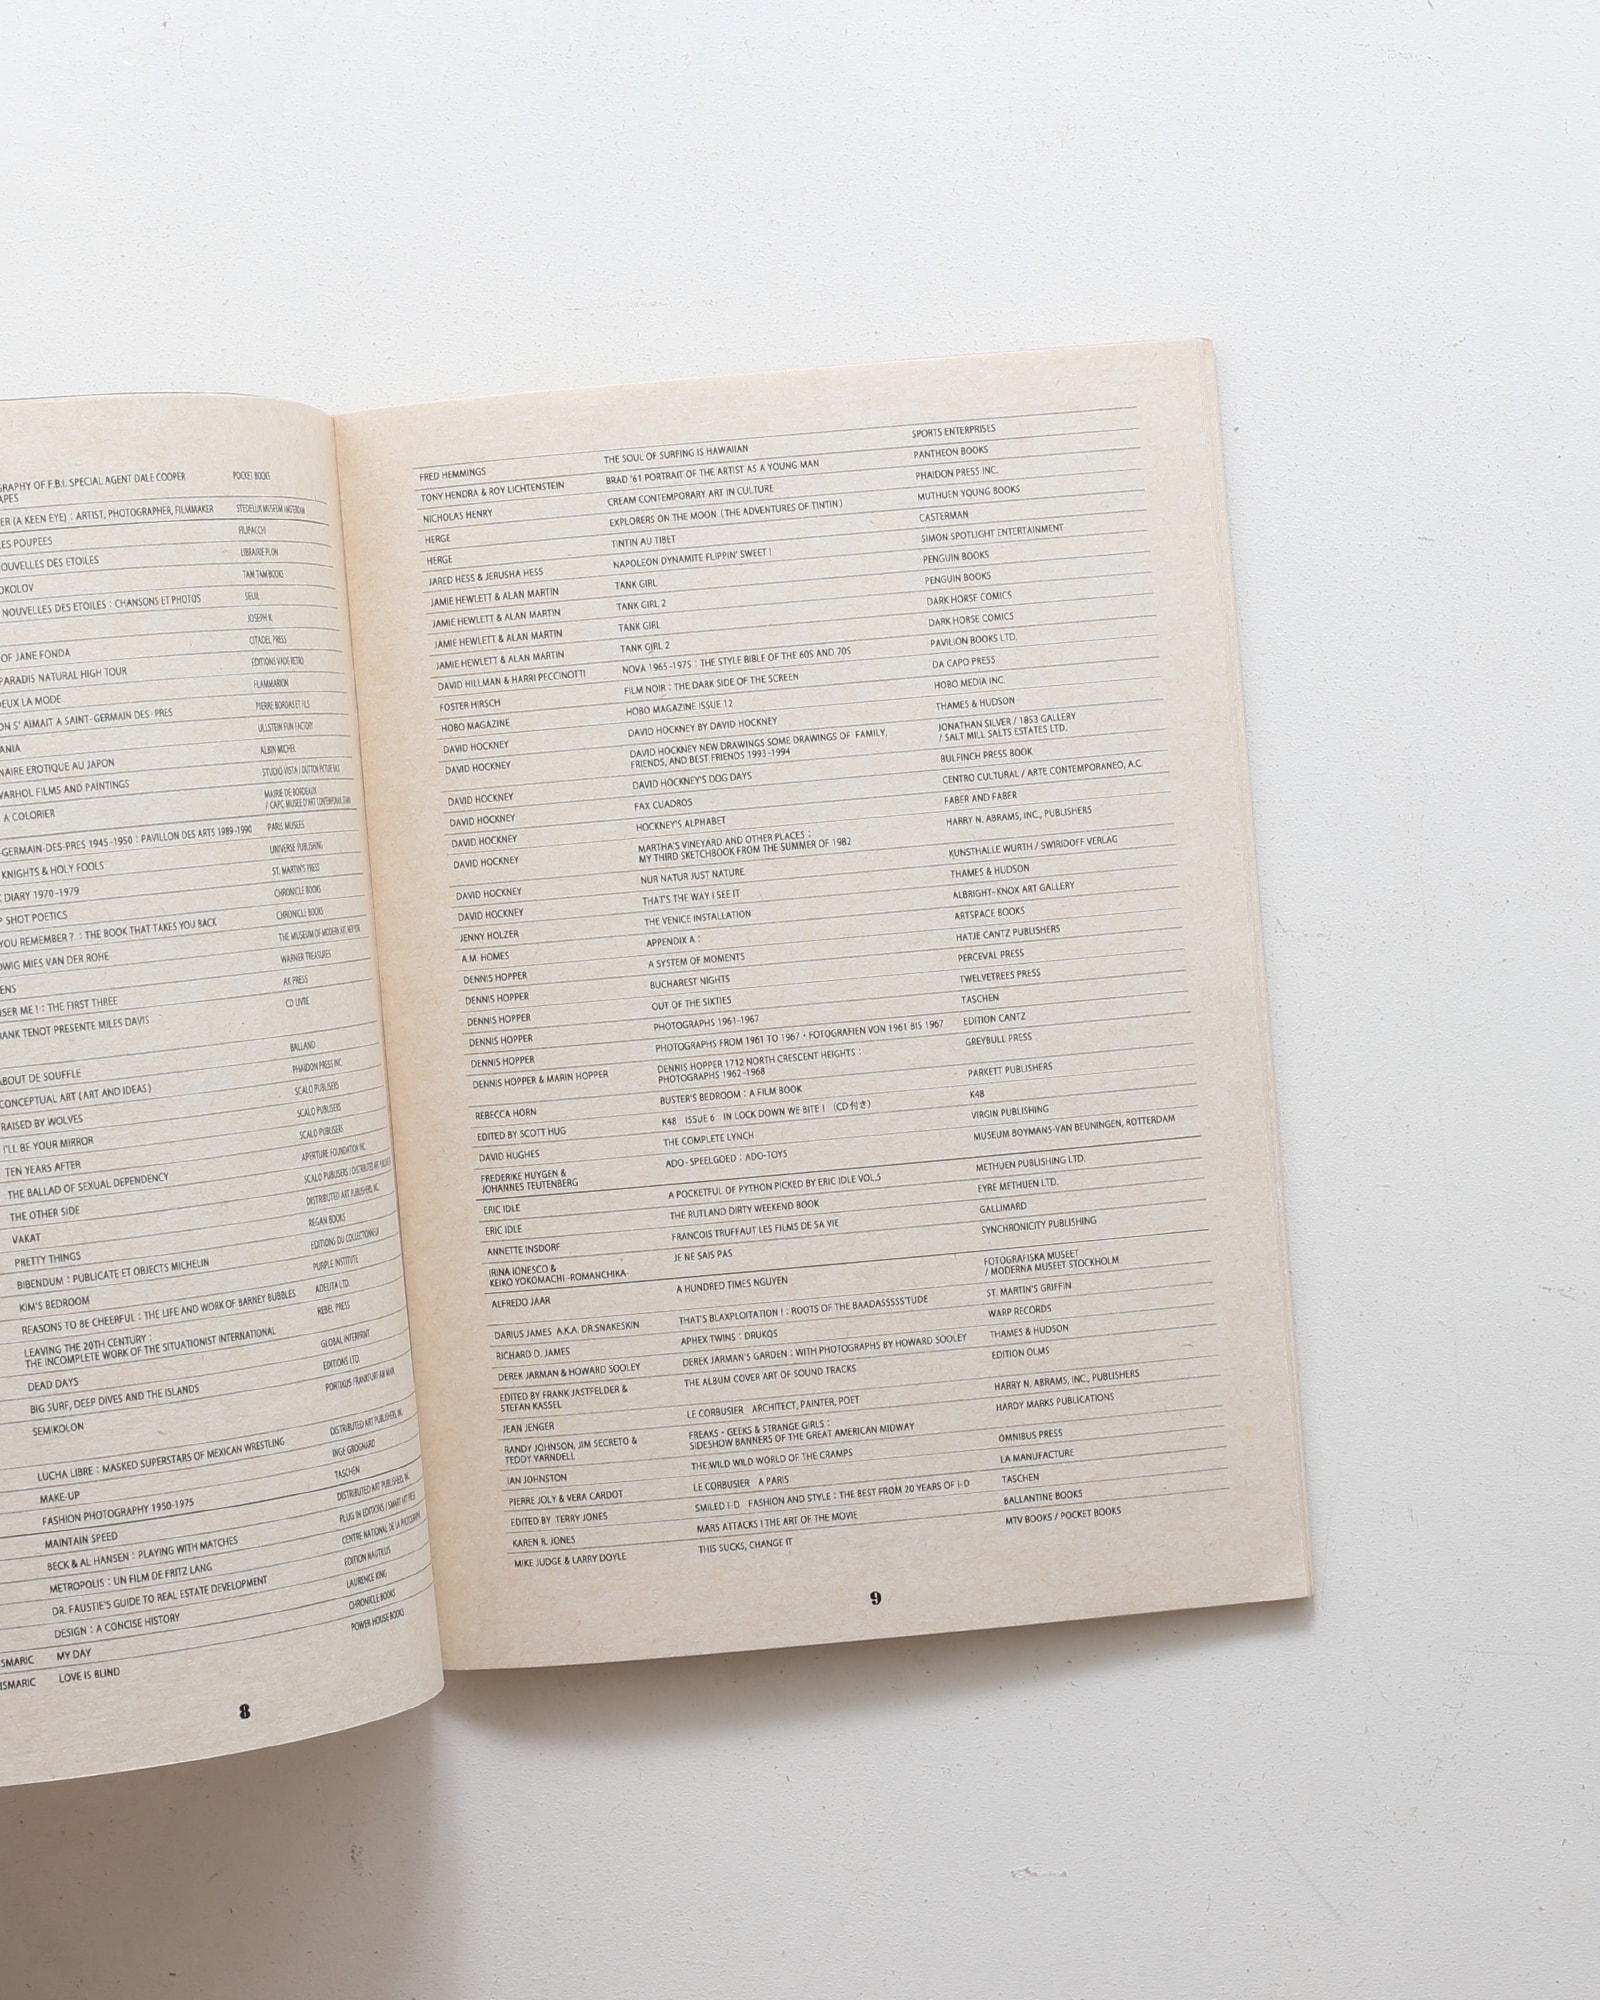 GRAPHY OF F.B.I. SPECIAL AGENT DALE COOPER POCKET BOOKS
APES
ER (A KEEN EYE) : ARTIST, PHOTOGRAPHER, FILMMAKER STEDELIJK MUSEUM AMSTERDAM
LES POUPEES FILIPACCHI
OUVELLES DES ETOILES LIBRAIRIE PLON
OKOLOV TAM TAM BOOKS
NOUVELLES DES ETOILES : CHANSONS ET PHOTOS SEUIL
JOSEPH K
OF JANE FONDA CITADEL PRESS
PARADIS NATURAL HIGH TOUR EDITIONS VADE RETRO
DEUX LA MODE FLAMMARION
ON S' AIMAIT A SAINT-GERMAIN DES-PRES PIERRE BORDAS ET FILS
ANIA ULLSTEIN FUN FACTORY
NAIRE EROTIQUE AU JAPON ALBIN MICHEL
WARHOL FILMS AND PAINTINGS STUDIO VISTA / DUTTON
A COLORIER MAIRIE DE BORDEAUX
/ CAPC MUSEE D'ART CONTEMPORAIN
-GERMAIN-DES-PRES 1945-1950 : PAVILLON DES ARTS 1989-1990 PARIS MUSEES
KNIGHTS & HOLY FOOLS UNIVERSE PUBLISHING
DIARY 1970-1979 ST. MARTIN'S PRESS
P SHOT POETICS CHRONICLE BOOKS
YOU REMEMBER ? : THE BOOK THAT TAKES YOU BACK CHRONICLE BOOKS
DWIG MIES VAN DER ROHE THE MUSEUM OF MODERN ART, NEW YORK
ENS WARNER TREASURES
SER ME ! : THE FIRST THREE AK PRESS
RANK TENOT PRESENTE MILES DAVIS CD LIVRE
ABOUT DE SOUFFLE BALLAND
CONCEPTUAL ART (ART AND IDEAS) PHAIDON PRESS INC.
RAISED BY WOLVES SCALO PUBLISERS
I'LL BE YOUR MIRROR SCALO PUBLISERS
TEN YEARS AFTER SCALO PUBLISERS
THE BALLAD OF SEXUAL DEPENDENCY APERTURE FOUNDATION INC.
THE OTHER SIDE SCALO PUBLISERS / DISTRIBUTED ART PUBLISHERS
VAKAT DISTRIBUTED ART PUBLISHERS, INC.
PRETTY THINGS REGAN BOOKS
BIBENDUM : PUBLICATE ET OBJECTS MICHELIN EDITIONS DU COLLECTIONNEUR
KIM'S BEDROOM PURPLE INSTITUTE
REASONS TO BE CHEERFUL : THE LIFE AND WORK OF BARNEY BUBBLES ADELITA LTD.
LEAVING THE 20TH CENTURY : REBEL PRESS
THE INCOMPLETE WORK OF THE SITUATIONIST INTERNATIONAL
DEAD DAYS GLOBAL INTERPRINT
BIG SURF, DEEP DIVES AND THE ISLANDS EDITIONS LTD.
SEMIKOLON PORTIKUS FRANKFURT AM MAIN
LUCHA LIBRE : MASKED SUPERSTARS OF MEXICAN WRESTLING DISTRIBUTED ART PUBLISHERS, INC.
MAKE-UP INGE GROGNARD
FASHION PHOTOGRAPHY 1950-1975 TASCHEN
MAINTAIN SPEED DISTRIBUTED ART PUBLISHERS, INC.
BECK & AL HANSEN : PLAYING WITH MATCHES PLUG IN EDITIONS / SMART ART PRESS
METROPOLIS : UN FILM DE FRITZ LANG CENTRE NATIONAL DE LA PHOTOGRAPHIE
DR. FAUSTIE'S GUIDE TO REAL ESTATE DEVELOPMENT EDITION NAUTILUS
DESIGN : A CONCISE HISTORY LAURENCE KING
SMARIC MY DAY CHRONICLE BOOKS
ISMARIC LOVE IS BLIND POWER HOUSE BOOKS
8
FRED HEMMINGS THE SOUL OF SURFING IS HAWAIIAN SPORTS ENTERPRISES
TONY HENDRA & ROY LICHTENSTEIN BRAD '61 PORTRAIT OF THE ARTIST AS A YOUNG MAN PANTHEON BOOKS
NICHOLAS HENRY CREAM CONTEMPORARY ART IN CULTURE PHAIDON PRESS INC.
HERGE EXPLORERS ON THE MOON (THE ADVENTURES OF TINTIN) MUTHUEN YOUNG BOOKS
HERGE TINTIN AU TIBET CASTERMAN
JARED HESS & JERUSHA HESS NAPOLEON DYNAMITE FLIPPIN' SWEET ! SIMON SPOTLIGHT ENTERTAINMENT
JAMIE HEWLETT & ALAN MARTIN TANK GIRL PENGUIN BOOKS
JAMIE HEWLETT & ALAN MARTIN TANK GIRL 2 PENGUIN BOOKS
JAMIE HEWLETT & ALAN MARTIN TANK GIRL DARK HORSE COMICS
JAMIE HEWLETT & ALAN MARTIN TANK GIRL 2 DARK HORSE COMICS
DAVID HILLMAN & HARRI PECCINOTTI NOVA 1965-1975 : THE STYLE BIBLE OF THE 60S AND 70S PAVILION BOOKS LTD.
FOSTER HIRSCH FILM NOIR : THE DARK SIDE OF THE SCREEN DA CAPO PRESS
HOBO MAGAZINE HOBO MAGAZINE ISSUE 12 HOBO MEDIA INC.
DAVID HOCKNEY DAVID HOCKNEY BY DAVID HOCKNEY THAMES & HUDSON
DAVID HOCKNEY DAVID HOCKNEY NEW DRAWINGS SOME DRAWINGS OF FAMILY, JONATHAN SILVER / 1853 GALLERY
FRIENDS, AND BEST FRIENDS 1993-1994 / SALT MILL SALTS ESTATES LTD.
DAVID HOCKNEY DAVID HOCKNEY'S DOG DAYS BULFINCH PRESS BOOK
DAVID HOCKNEY FAX CUADROS CENTRO CULTURAL / ARTE CONTEMPORANEO, A.C.
DAVID HOCKNEY HOCKNEY'S ALPHABET FABER AND FABER
DAVID HOCKNEY MARTHA'S VINEYARD AND OTHER PLACES : HARRY N. ABRAMS, INC., PUBLISHERS
MY THIRD SKETCHBOOK FROM THE SUMMER OF 1982
DAVID HOCKNEY NUR NATUR JUST NATURE KUNSTHALLE WURTH / SWIRIDOFF VERLAG
DAVID HOCKNEY THAT'S THE WAY I SEE IT THAMES & HUDSON
JENNY HOLZER THE VENICE INSTALLATION ALBRIGHT-KNOX ART GALLERY
A.M. HOMES APPENDIX A : ARTSPACE BOOKS
DENNIS HOPPER A SYSTEM OF MOMENTS HATJE CANTZ PUBLISHERS
DENNIS HOPPER BUCHAREST NIGHTS PERCEVAL PRESS
DENNIS HOPPER OUT OF THE SIXTIES TWELVETREES PRESS
DENNIS HOPPER PHOTOGRAPHS 1961-1967 TASCHEN
DENNIS HOPPER PHOTOGRAPHS FROM 1961 TO 1967・FOTOGRAFIEN VON 1961 BIS 1967 EDITION CANTZ
DENNIS HOPPER & MARIN HOPPER DENNIS HOPPER 1712 NORTH CRESCENT HEIGHTS : GREYBULL PRESS
PHOTOGRAPHS 1962-1968
REBECCA HORN BUSTER'S BEDROOM : A FILM BOOK PARKETT PUBLISHERS
EDITED BY SCOTT HUG K48 ISSUE 6 IN LOCK DOWN WE BITE ! (CD付き) K48
DAVID HUGHES THE COMPLETE LYNCH VIRGIN PUBLISHING
FREDERIKE HUYGEN & ADO-SPEELGOED : ADO-TOYS MUSEUM BOYMANS-VAN BEUNINGEN, ROTTERDAM
JOHANNES TEUTENBERG
ERIC IDLE A POCKETFUL OF PYTHON PICKED BY ERIC IDLE VOL.5 METHUEN PUBLISHING LTD.
ERIC IDLE THE RUTLAND DIRTY WEEKEND BOOK EYRE METHUEN LTD.
ANNETTE INSDORF FRANCOIS TRUFFAUT LES FILMS DE SA VIE GALLIMARD
IRINA IONESCO & JE NE SAIS PAS SYNCHRONICITY PUBLISHING
KEIKO YOKOMACHI -ROMANCHIKA-
ALFREDO JAAR A HUNDRED TIMES NGUYEN FOTOGRAFISKA MUSEET
/ MODERNA MUSEET STOCKHOLM
DARIUS JAMES A.K.A. DR.SNAKESKIN THAT'S BLAXPLOITATION ! : ROOTS OF THE BAADASSSSS'TUDE ST. MARTIN'S GRIFFIN
RICHARD D. JAMES APHEX TWINS : DRUKQS WARP RECORDS
DEREK JARMAN & HOWARD SOOLEY DEREK JARMAN'S GARDEN : WITH PHOTOGRAPHS BY HOWARD SOOLEY THAMES & HUDSON
EDITED BY FRANK JASTFELDER & THE ALBUM COVER ART OF SOUND TRACKS EDITION OLMS
STEFAN KASSEL
JEAN JENGER LE CORBUSIER ARCHITECT, PAINTER, POET HARRY N. ABRAMS, INC., PUBLISHERS
RANDY JOHNSON, JIM SECRETO & FREAKS・GEEKS & STRANGE GIRLS : HARDY MARKS PUBLICATIONS
TEDDY VARNDELL SIDESHOW BANNERS OF THE GREAT AMERICAN MIDWAY
IAN JOHNSTON THE WILD WILD WORLD OF THE CRAMPS OMNIBUS PRESS
PIERRE JOLY & VERA CARDOT LE CORBUSIER A PARIS LA MANUFACTURE
EDITED BY TERRY JONES SMILED I-D FASHION AND STYLE : THE BEST FROM 20 YEARS OF I-D TASCHEN
KAREN R. JONES MARS ATTACKS ! THE ART OF THE MOVIE BALLANTINE BOOKS
MIKE JUDGE & LARRY DOYLE THIS SUCKS, CHANGE IT MTV BOOKS / POCKET BOOKS
9